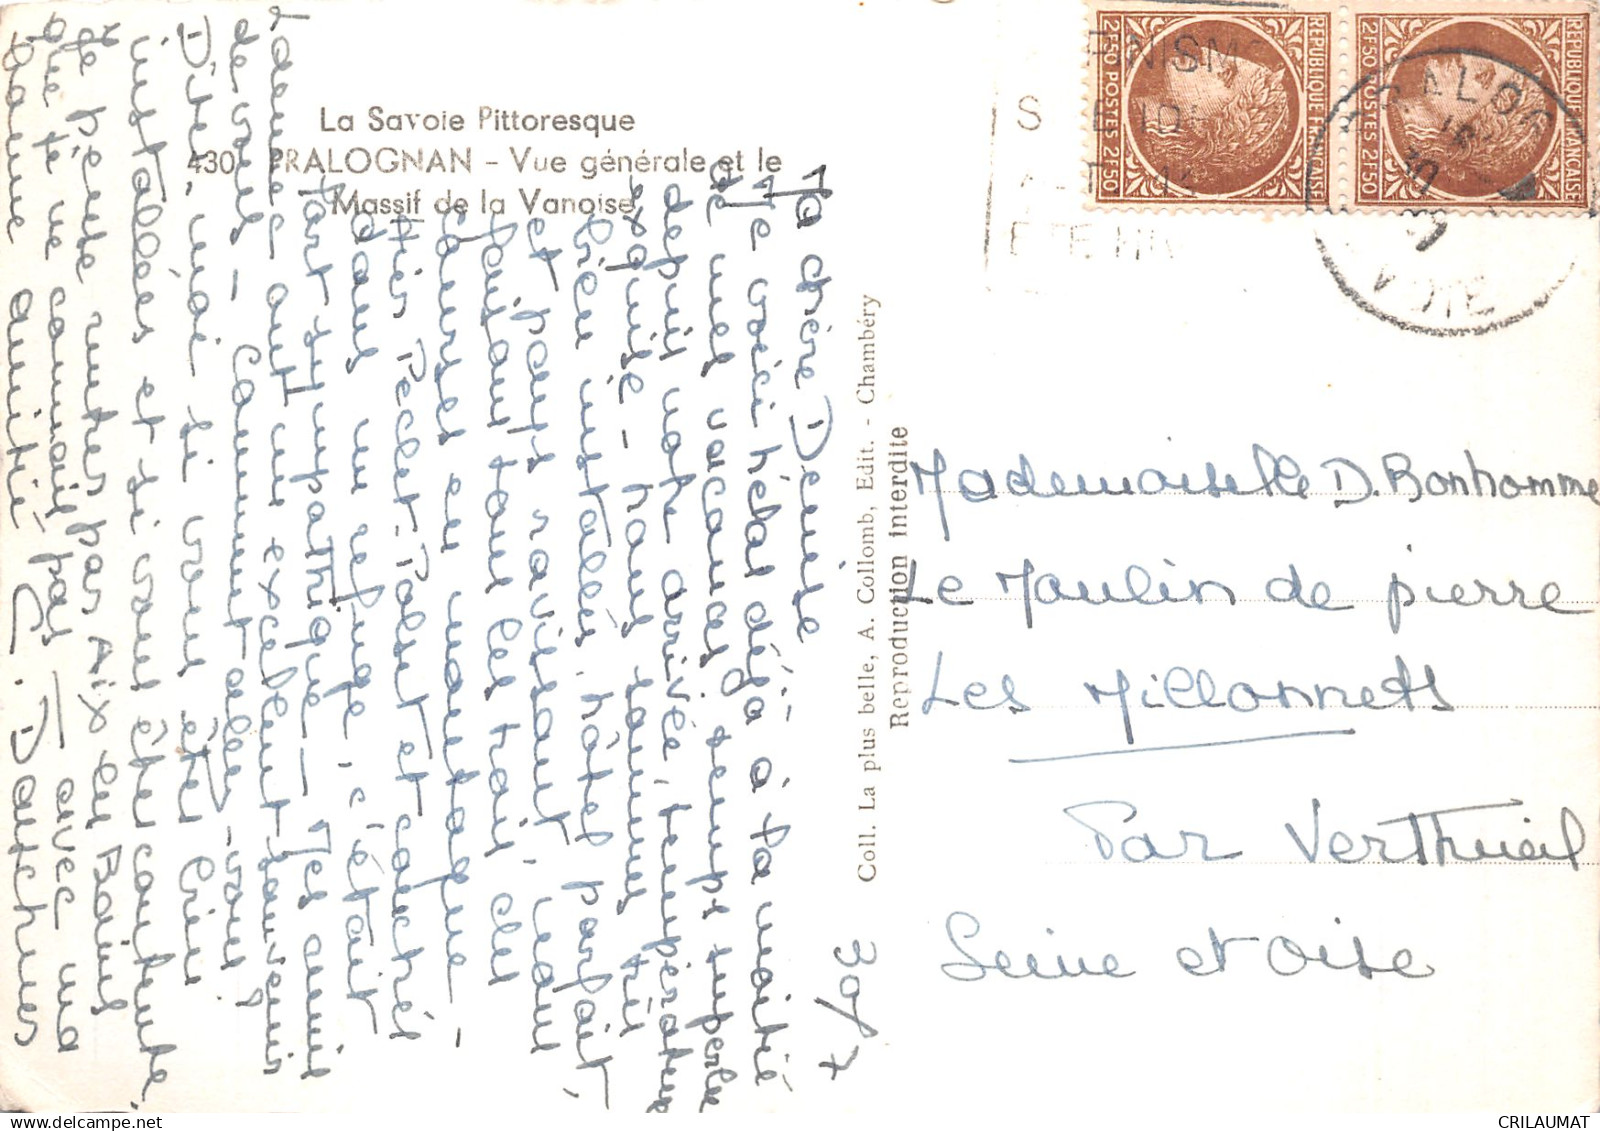 La Savoie Pittoresque
430 PRALOGNAN - Vue générale et le
Massif de la Vanoise
30/7
Ma chère Denise
Me voici hélas déjà à la moitié
de mes vacances, temps superbe
depuis notre arrivée, température
exquise - nous sommes très
bien installés, hôtel parfait,
et pays ravissant, nous
faisons tous les trois des
courses en montagne -
Hier Péclet-Polset et couché
dans un refuge, c'était
fort sympathique - Mes amis
de vous - Comment allez-vous?
Dites-moi si vous êtes bien
installées et si vous êtes contente
Je pense monter par Aix les Bains
que je ne connais pas - avec ma
bonne amitié
Mademoiselle D. Bonhomme
Le Moulin de pierre
Les Millonnets
Par Vertheuil
Seine et Oise
Coll. La plus belle, A. Collomb, Edit. - Chambéry
Reproduction interdite
REPUBLIQUE FRANÇAISE
2F50 POSTES 2F50
REPUBLIQUE FRANÇAISE
2F50 POSTES 2F50
CRILAUMAT